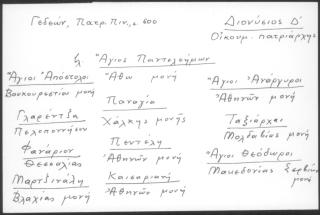 Γεδεών, Πατρ. Πιν., σ. 600
Διονύσιος Δ'
Οἰκουμ. πατριάρχης
Ἅγιος Παντελεήμων
Ἄθω μονή
Ἅγιοι Ἀπόστολοι
Βουκουρεστίου μονή
Ἅγιοι Ἀνάργυροι
Ἀθηνῶν μονή
Παναγία
Χάλκης μονῆς
Γλαρέντζα
Πελοποννήσου
Ταξιάρχαι
Μολδαβίας μονή
Πεντέλη
Ἀθηνῶν μονή
Φανάριον
Θεσσαλίας
Ἅγιοι Θεόδωροι
Μακεδονίας Σερβίων
μονή
Καισαριανή
Ἀθηνῶν μονή
Μαρτζινάλη
Βλαχίας μονή